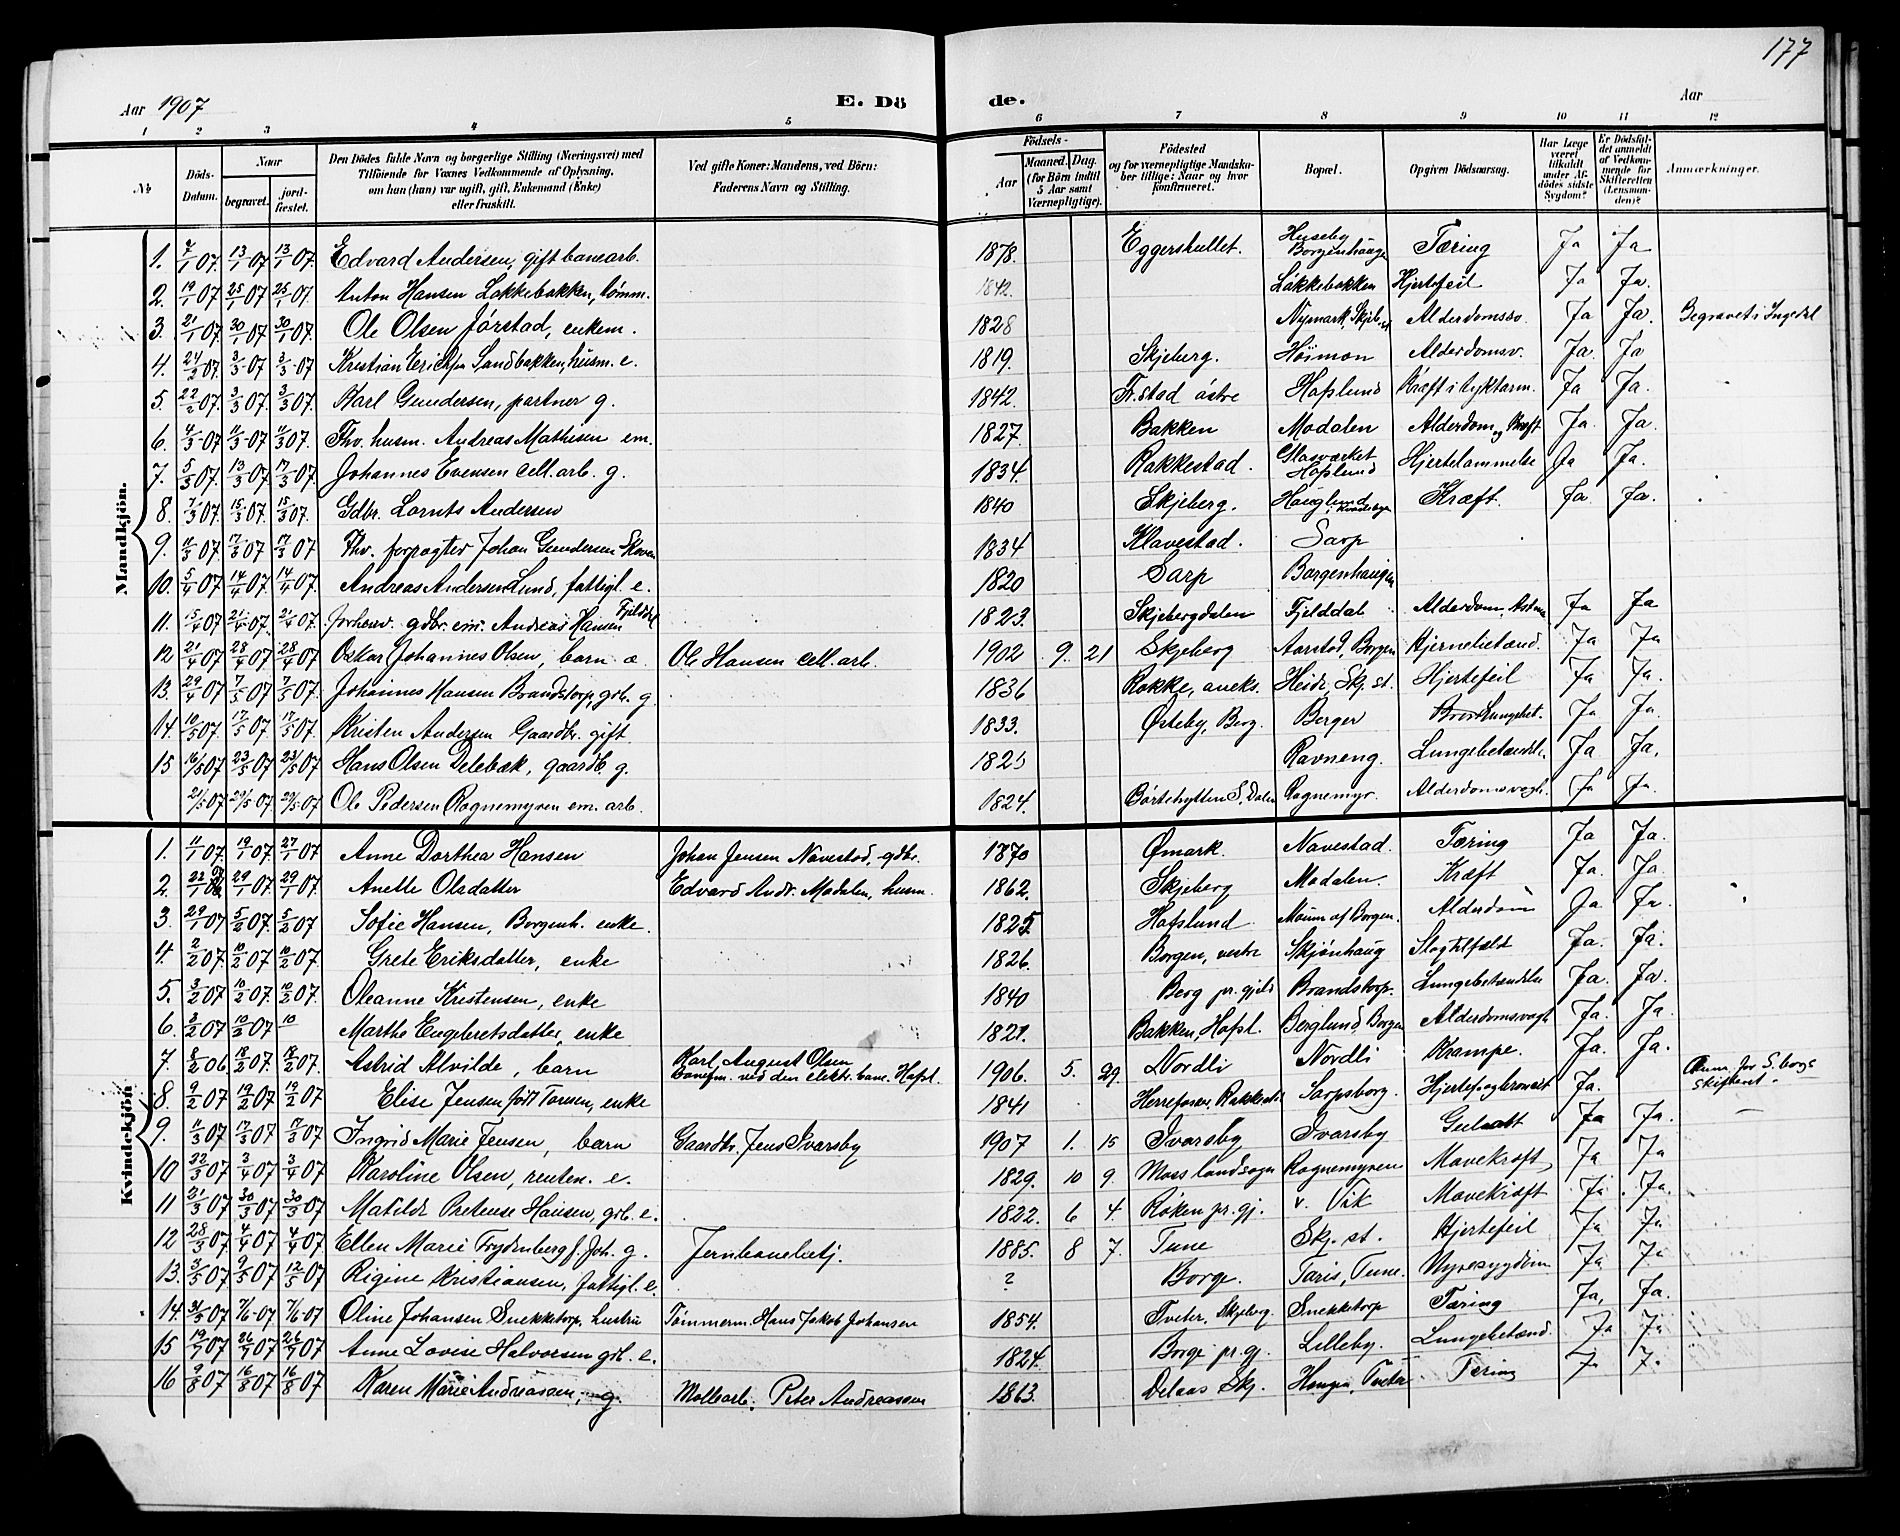 177
Aar 1907 E. Döde. Aar
1 2 3 4 5 6 7 8 9 10 11 12
№ Döds-Datum. Naar begravet. jordfæstet. Den Dödes fulde Navn og borgerlige Stilling (Næringsvei) med Tilföiende for Voxnes Vedkommende af Oplysning, om han (hun) var ugift, gift, Enkemand (Enke) eller fraskilt. Ved gifte Koner: Mandens, ved Börn: Faderens Navn og Stilling. Födsels- Aar Maaned. Dag. (for Börn indtil 5 Aar samt Værnepligtige). Födested og for værnepligtige Mandskaber tillige: Naar og hvor konfirmeret. Bopæl. Opgiven Dödsaarsag. Har Læge været tilkaldt under Afdödes sidste Sygdom? Er Dödsfaldet anmeldt af Vedkommende for Skifteretten (Lensmanden)? Anmærkninger.
Mandkjön.
1. 7/1 07. 13/1 07 13/1 07. Edvard Andersen, gift banearb. 1878. Eggershullet. Huseby Borgenhauge Tæring Ja Ja
2. 19/1 07 25/1 07 25/1 07. Anton Hansen Løkkebakken, tømm. 1842. Løkkebakken Hjertefeil Ja Ja.
3. 21/1 07. 30/1 07. 30/1 07. Ole Olsen Jørstad, enkem. 1828 Nymark, Skjeb. st. Alderdomssv. Ja Ja. Begravet i Ingedal
4. 24/2 07. 3/3 07 3/3 07. Kristian Erichsen Sandbakken, husm. e. 1819. Skjeberg. Høimon Alderdomsv. Ja. Ja
5. 22/2 07. 3/3 07. 3/3 07. Karl Gundersen, partner g. 1842. Fr.stad østre Hafslund Kræft i tyktarm. Ja Ja.
6. 4/3 07 11/3 07 11/3 07. Fhv. husm. Andreas Mathisen em. 1827. Bakken Modalen Alderdom og Kræft Ja. Ja.
7. 5/3 07. 13/3 07 17/3 07. Johannes Evensen cell. arb. g. 1834. Rakkestad. Glasværket Hafslund Hjertelammelse Ja Ja.
8. 7/3 07. 15/3 07. 15/3 07. Gdbr. Lornts Andersen 1840 Skjeberg. Hauglund Kræft. Ja. Ja.
9. 11/3 07 17/3 07 17/3 07 Fhv. forpagter Johan Gundersen Skoven 1834 Klavestad. Sarp
10. 5/4 07 14/4 07. 14/4 07. Andreas Andersen Lund, fattigl. e. 1820 Sarp Borgenhaugen
11. 15/4 07 21/4 07. 21/4 07. forhenv. gdbr. em. Andreas Hansen Fjelddal 1823. Skjebergdalen Fjelddal Alderdom, Ja Ja
12 21/4 07 28/4 07 28/4 07. Oskar Johannes Olsen, barn æ. Ole Hansen cell. arb. 1902 9. 21 Skjeberg Aarstad, Borgen Hjernebetænd. Ja Ja
13. 29/4 07 7/5 07 7/5 07. Johannes Hansen Brandstorp, grb. g. 1836 Rokke, aneks. Heide, Skj. st. Hjertefeil Ja Ja.
14. 10/5 07. 17/5 07 17/5 07. Kristen Andersen Gaardbr. gift. 1833. Østeby, Berg. Berger Lungebet. Ja Ja.
15 16/5 07 23/5 07 23/5 07 Hans Olsen Delebæk, gaardb. g. Ravneng. Lungebetændelse Ja Ja.
21/5 07 29/5 07 29/5 07 Ole Pedersen Rognemyren em. arb. 1824. Børtehytten S. Dalen Rognemyr. Alderdomsvagh. Ja Ja.
Kvindekjön
1. 11/1 07. 19/1 07. 27/1 07 Anne Dorthea Hansen Johan Jensen Navestad, gdbr. 1870 Ømark. Navestad. Tæring Ja Ja.
2. 22/1 07 29/1 07. 29/1 07. Anette Olsdatter Edvard Andr. Modalen, husm. 1862. Skjeberg Modalen. Kræft Ja. Ja.
3. 29/1 07 5/2 07. 5/2 07 Sofie Hansen, Borgenh. enke. 1825. Hafslund Moum af Borgen. Alderdom Ja Ja.
4. 2/2 07. 10/2 07 10/2 07. Grete Eriksdatter, enke 1826. Borgen, vestre Skjønhaug Slagtilfælde Ja. Ja.
5. 3/2 07 10/2 07 10/2 07. Oleanne Kristensen, enke 1840 Berg pr. gjeld Brandstorp. Lungebetændelse Ja. Ja.
6. 3/2 07 10/2 07 10 Marthe Engebretsdatter, enke 1821. Bakken, Hafsl. Berglund, Borgen Alderdomsvagh Ja. Ja.
7. 8/2 06 18/2 07. 18/2 07. Astrid Alvilde, barn Karl August Olsen Banefm. ved den elektr. bane. Hafsl. 1906. 5. 29. Nordli Nordli Krampe. Ja. Ja.
8. 9/2 07 19/2 07 19/2 07 Elise Jensen født Tomsen, enke 1841 Herrefoss, Rakkest. Sarpsborg. Ja. Anm. for S. borgs skifteret.
9. 11/3 07 17/3 07 17/3 07 Ingrid Marie Jensen, barn Gaardbr. Jens Ivarsby 1907 1. 15 Ivarsby Ivarsby Gulsott Ja Ja.
10 22/3 07 3/4 07 3/4 07 Karoline Olsen, renten. e. 1829. 10 9. Moss landsogn Rognemyren Mavekræft Ja Ja
11 21/3 07 30/3 07 30/3 07. Matilde Pretense Hansen, grb. e. 1822. 6 4. Røken pr. gj. v. Vik Mavekræft Ja. Ja.
12 28/3 07. 4/4 07 4/4 07 Ellen Marie Frydenberg f. Joh. g. Jernbanebetj. 1885. 8 7. Tune Skj. st. Hjertefeil Ja Ja
13. 3/5 07 9/5 07 12/5 07 Rigine Kristiansen, fattigl. e. ? Borge. Taris, Tune. Nyresygdom Ja Ja
14. 31/5 07 7/6 07 7/6 07 Oline Johansen Snekketorp, hustru Tømmerm. Hans Jakob Johansen 1854. Tveter, Skjeberg. Snekketorp Tæring Ja, Ja.
15 19/7 07 26/7 07 26/7 07 Anne Lovise Halvorsen grb. e. 1824. Borge pr. g. Lilleby. Lungebetænd. Ja Ja
16 9/8 07 16/8 07 16/8 07 Karen Marie Andreassen, g. Mølbarb. Peter Andreassen 1863. Delaas Skj. Haugen, Tveter Tæring J. J.